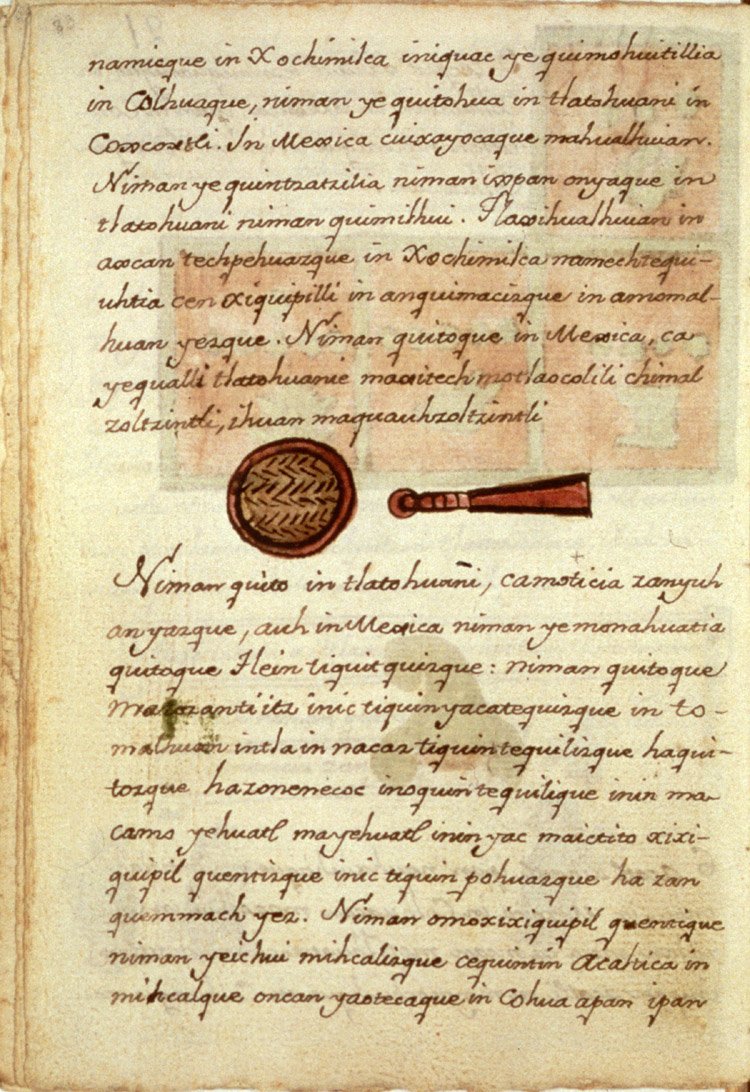 namicque in Xochimilca iniquac ye quimohuitillia
in Colhuaque, niman ye quitohua in tlatohuani in
Coxcoxtli. In Mexica cuixayocaque mahualhuian.
Niman ye quintzatzilia niman ixpan onyaque in
tlatohuani niman quimilhui. Tlaxihualhuian in
axcan techpehuazque in Xochimilca namechtequi-
uhtia cen xiquipilli in anquimacizque in amomal-
huan yezque. Niman quitoque in Mexica, ca
yequalli tlatohuanie maxitechmotlaocolili chimal
zoltzintli, ihuan maquauhzoltzintli
Niman quito in tlatohuani, camoticia zanyuh
anyazque, auh in Mexica niman ye monahuatia
quitoque Tlein tiquitquizque: niman quitoque
ma itz inic tiquinyacatequizque in to-
malhuan intla in nacaz tiquintequilizque haqui-
tozque hazonenecoc inoquintequilique inin ma-
camo yehuatl mayehuatl inin yac maictito xixi-
quipil quentizque inic tiquin pohuazque ha zan
quemmach yez. Niman omoxixiquipil quentique
niman yeichui mihcalizque cequintin Acahica in
mihcalque oncan yaotecaque in Cohua apan ipan